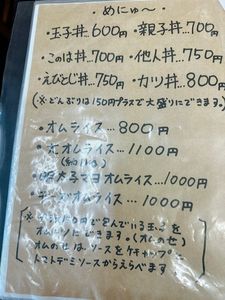 めにゅ～
・玉子丼…600円 ・親子丼…700円
・このは丼…700円 ・他人丼…750円
・えびとじ丼…750円 ・カツ丼…800円
(※どんぶりは150円プラスで大盛りにできます。)
・オムライス…800円
・大オムライス…1100円
・明太子マヨオムライス…1000円
・チーズオムライス…1000円
※
オムのせにできます。(オムのせ)
オムのせは、ソースをケチャップか
トマトデミソースからえらべます